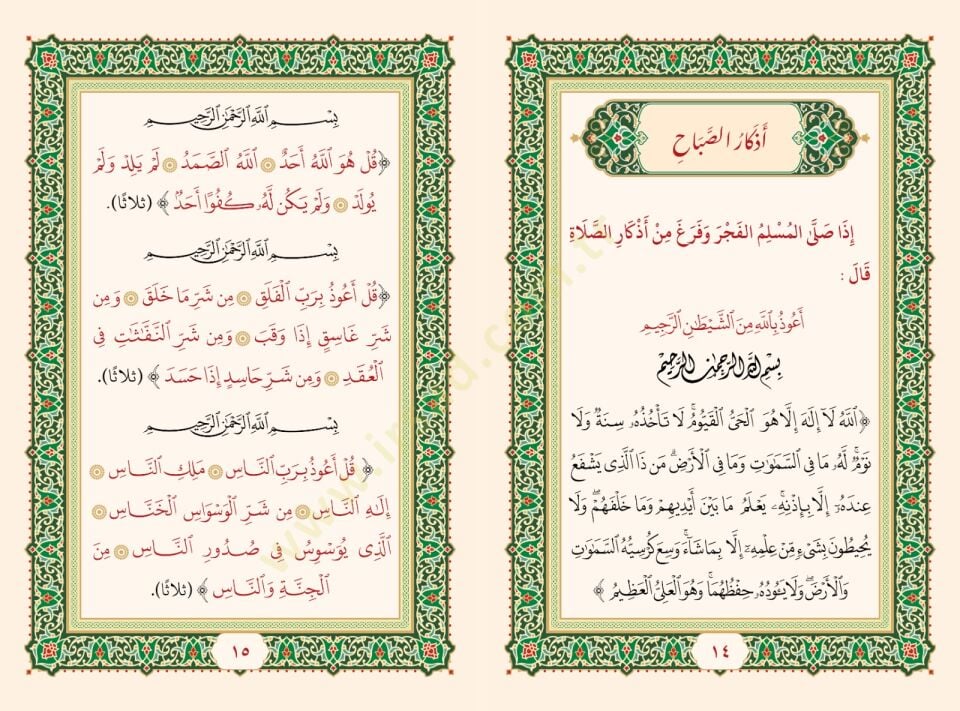 أَذْكَارُ الصَّبَاحِ
إِذَا صَلَّى المُسْلِمُ الفَجْرَ وَفَرَغَ مِنْ أَذْكَارِ الصَّلَاةِ
قَالَ :
أَعُوذُ بِاللَّهِ مِنَ الشَّيْطَانِ الرَّجِيمِ
بِسْمِ اللَّهِ الرَّحْمَنِ الرَّحِيمِ
﴿ٱللَّهُ لَآ إِلَٰهَ إِلَّا هُوَ ٱلْحَىُّ ٱلْقَيُّومُ ۚ لَا تَأْخُذُهُۥ سِنَةٌ وَلَا
نَوْمٌ ۚ لَّهُۥ مَا فِى ٱلسَّمَٰوَٰتِ وَمَا فِى ٱلْأَرْضِ ۗ مَن ذَا ٱلَّذِى يَشْفَعُ
عِندَهُۥٓ إِلَّا بِإِذْنِهِۦ ۚ يَعْلَمُ مَا بَيْنَ أَيْدِيهِمْ وَمَا خَلْفَهُمْ ۖ وَلَا
يُحِيطُونَ بِشَىْءٍ مِّنْ عِلْمِهِۦٓ إِلَّا بِمَا شَآءَ ۚ وَسِعَ كُرْسِيُّهُ ٱلسَّمَٰوَٰتِ
وَٱلْأَرْضَ ۖ وَلَا يَـُٔودُهُۥ حِفْظُهُمَا ۚ وَهُوَ ٱلْعَلِىُّ ٱلْعَظِيمُ ﴾
١٤
بِسْمِ ٱللَّهِ ٱلرَّحْمَٰنِ ٱلرَّحِيمِ
﴿قُلْ هُوَ ٱللَّهُ أَحَدٌ ۞ ٱللَّهُ ٱلصَّمَدُ ۞ لَمْ يَلِدْ وَلَمْ
يُولَدْ ۞ وَلَمْ يَكُن لَّهُۥ كُفُوًا أَحَدٌۢ ﴾ (ثلاثًا).
بِسْمِ ٱللَّهِ ٱلرَّحْمَٰنِ ٱلرَّحِيمِ
﴿قُلْ أَعُوذُ بِرَبِّ ٱلْفَلَقِ ۞ مِن شَرِّ مَا خَلَقَ ۞ وَمِن
شَرِّ غَاسِقٍ إِذَا وَقَبَ ۞ وَمِن شَرِّ ٱلنَّفَّٰثَٰتِ فِى
ٱلْعُقَدِ ۞ وَمِن شَرِّ حَاسِدٍ إِذَا حَسَدَ ﴾ (ثلاثًا).
بِسْمِ ٱللَّهِ ٱلرَّحْمَٰنِ ٱلرَّحِيمِ
﴿ قُلْ أَعُوذُ بِرَبِّ ٱلنَّاسِ ۞ مَلِكِ ٱلنَّاسِ ۞
إِلَٰهِ ٱلنَّاسِ ۞ مِن شَرِّ ٱلْوَسْوَاسِ ٱلْخَنَّاسِ ۞
ٱلَّذِى يُوَسْوِسُ فِى صُدُورِ ٱلنَّاسِ ۞ مِنَ
ٱلْجِنَّةِ وَٱلنَّاسِ ﴾ (ثلاثًا).
١٥